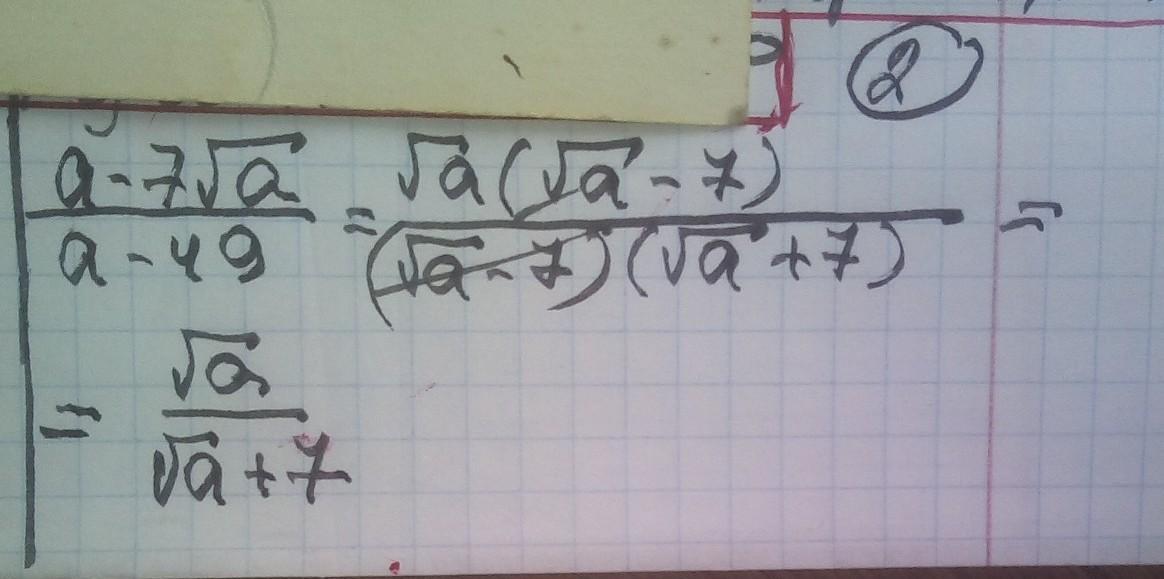 2
a - 7√a / a - 49 = √a(√a - 7) / (√a - 7)(√a + 7) =
= √a / √a + 7